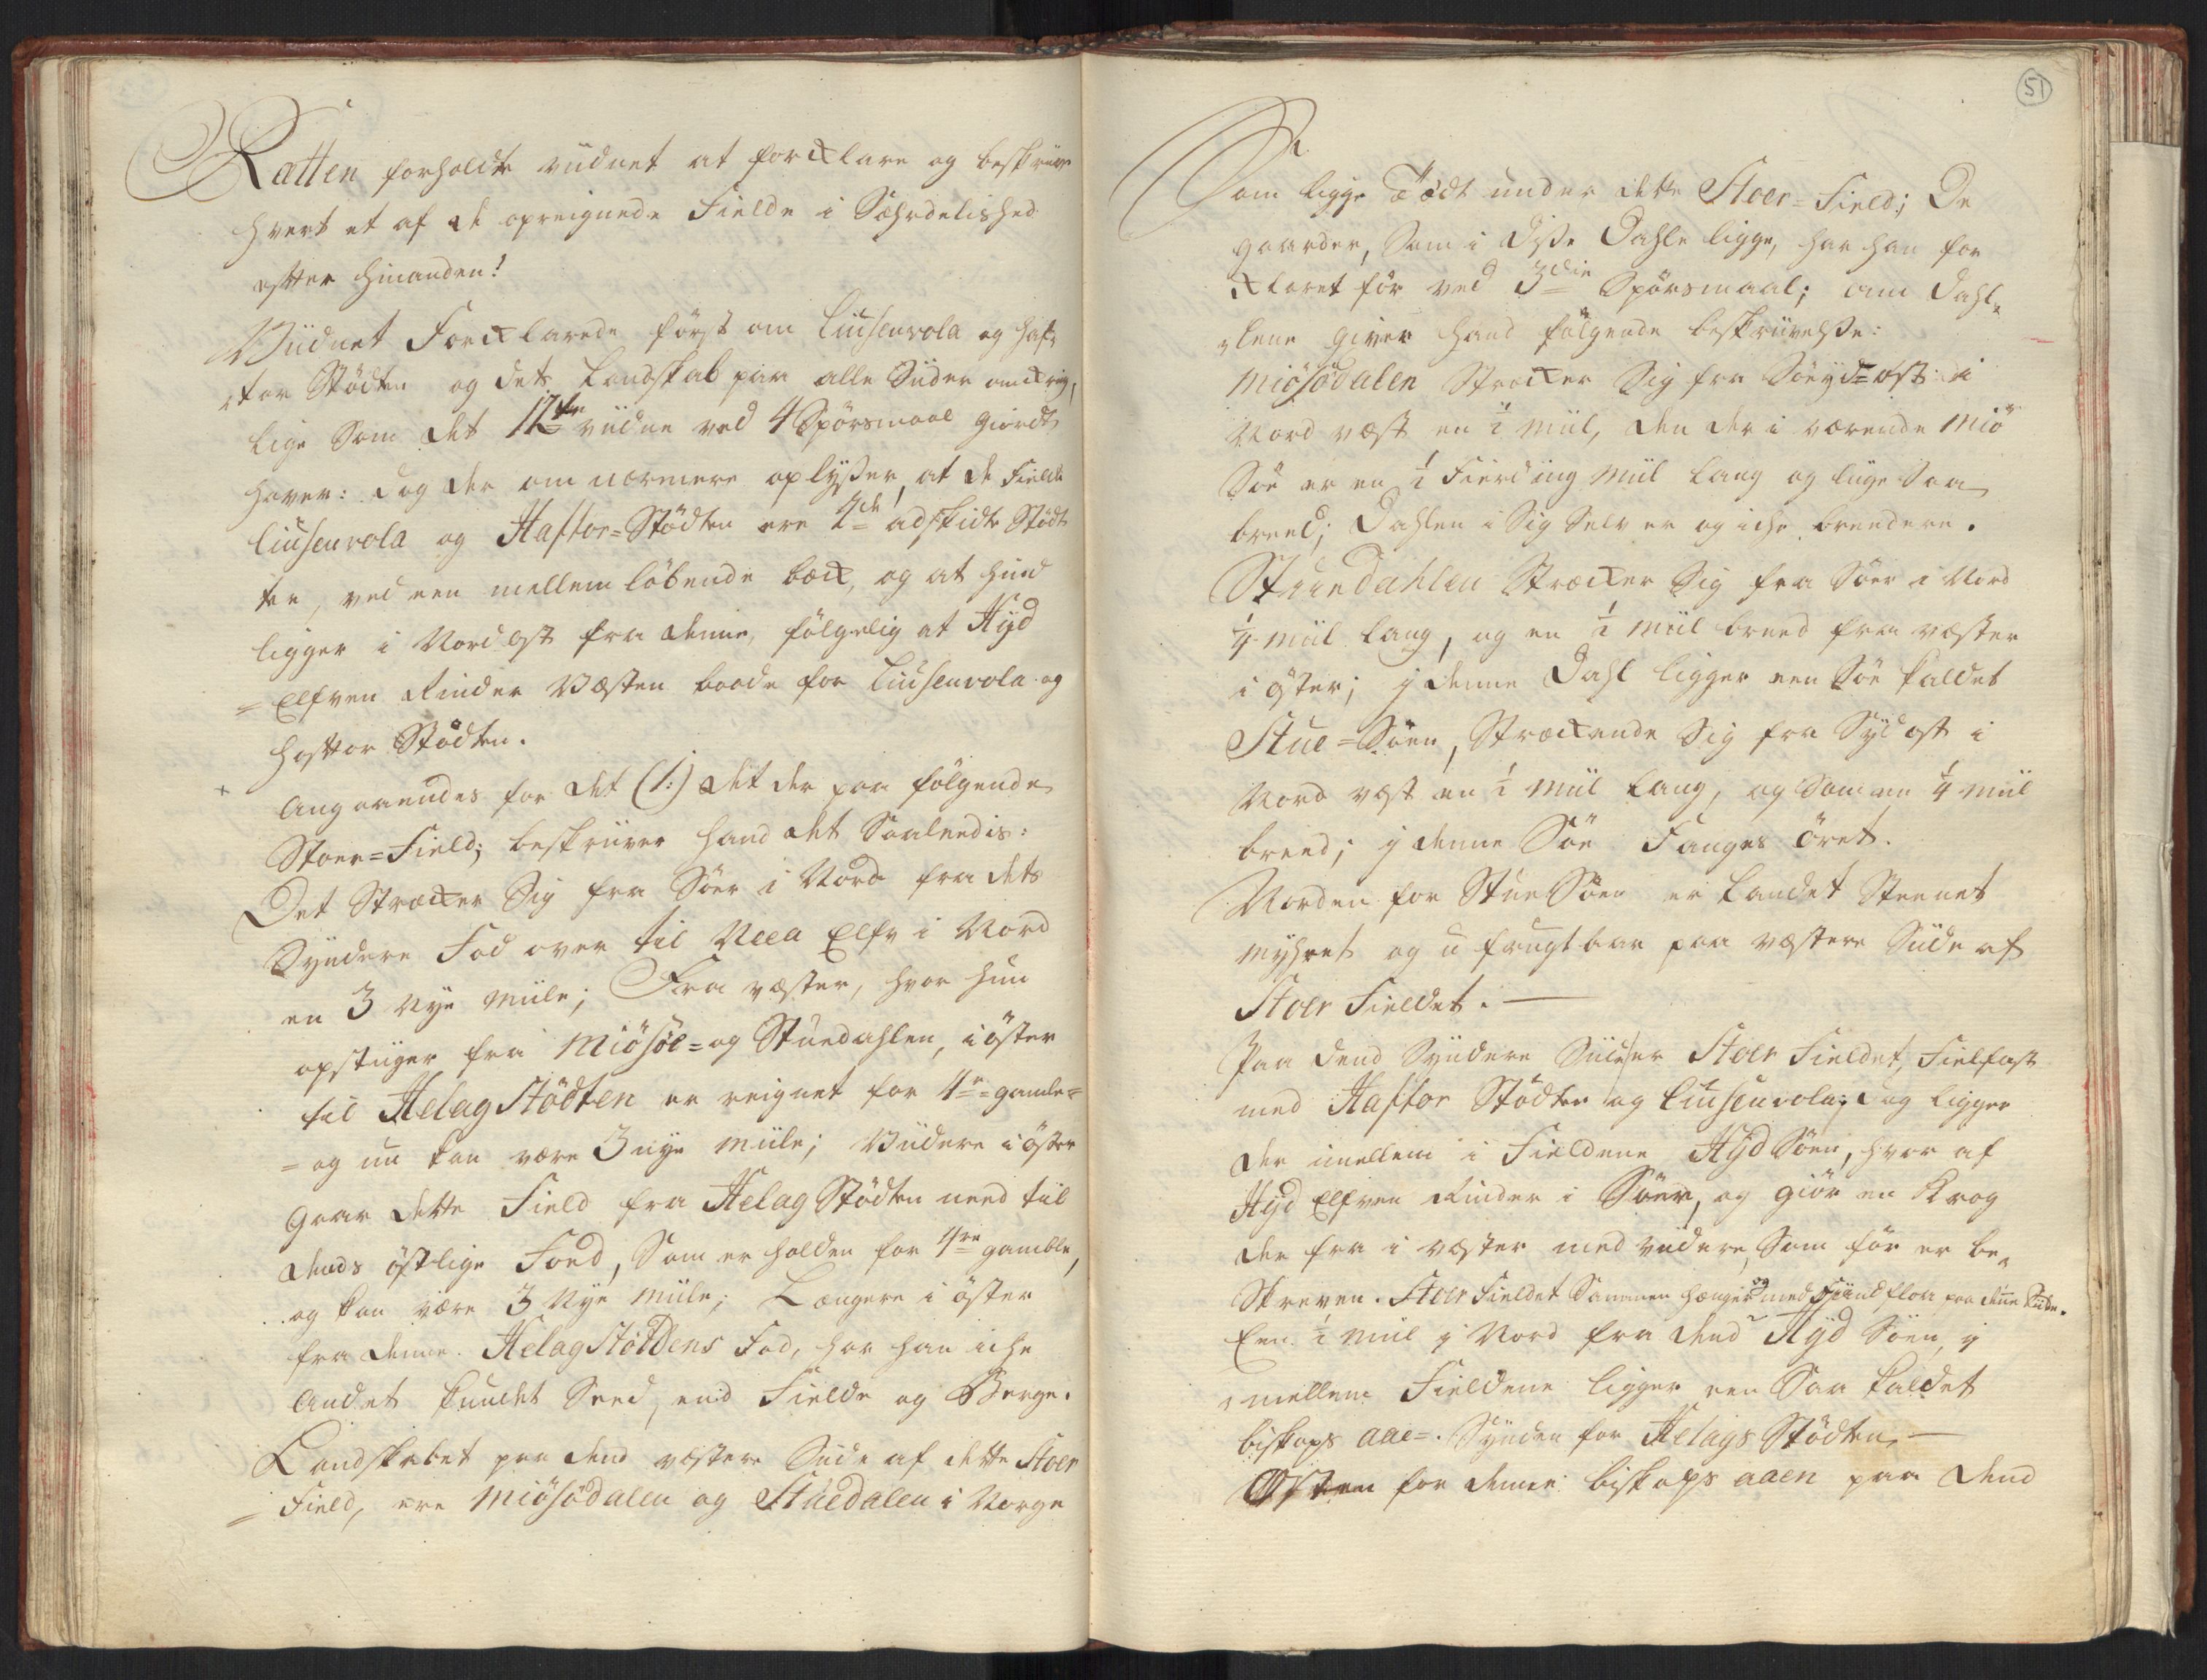 Rætten forholdte viidnet at forklare og beskriive
hvert et af de opreignede Fielde i Sæhrdelished
efter hinanden!
Viidnet Forklarede først om Liusenvola og Haf¬
tor Stødten og dets Landskab paa alle Siider omkring,
lige som det 12te viidne ved 4 Spørsmaal giordt
haver: dog der om nærmere oplyser, at de Fielde
Liusenvola og Haftor=Stødten ere 2de adskidte Stødt
ter, ved een mellem løbende bæk, og at hiin
ligger i Nordost fra denne, følgelig at Hyd
=Elfven Rinder Væsten baade for Liusenvola og
Haftor Stødten.
+ Angaaendes for det (1:) det der paa følgende
Stoer=Field; beskriiver hand det Saaleedis:
Det Strækker Sig fra Sør i Nord fra dets
Syndere Fod over til Neea Elfv i Nord
en 3 Nye Miile; Fra væster, hvor hun
opstiiger fra Miösöe= og Stuedahlen, i öster
til Helag Stödten er reignet for 4re gamle=
=og nu kan være 3 nye Miile; Viidere i öster
Gaar dette Field fra Helag Stödten need til
dends östlige Foed, Som er holden for 4re gamble,
og kan være 3 Nye Miile; Længere i öster
fra denne Helag Stötdens Fod, har han iche
Andet kundet Seed, end Fielde og Berge.
Landskabet paa dend væstere Siide af dette Stoer
=Field, ere Miösödalen og Stuedalen i Norge
51
Som ligge Tædt under dette Stoer=Field; De
gaarder, Som i disse Dahle ligge, har han for
klaret för ved 3die Spørsmaal; om Dahl¬
lene giver hand følgende beskriivelse:
Miösödalen Strækker Sig fra Söeyd=ost i
Nord væst en ½ Miil, den der i værende Miö
Söe er en ½ Fierding Miil Lang og liige Saa
breed; Dahlen i Sig Selv er og iche breedere.
Stuedahlen Strækker Sig fra Söer i Nord
¼ Miil Lang, og en ½ Miil breed fra væster
i öster; j denne Dahl ligger een Söe kaldet
Stue=Söen, Strækkende Sig fra Sydost i
Nord væst en ½ Miil Lang, og Som en ¼ Miil
breed; j denne Söe Fanges öret.
Norden for Stue Söen er Landet Steenet
myhret og u frugtbar paa væstere Siide af
Stoer Fieldet. —
Paa dend Syndere Siide er Stoer Fieldet, Fielfast
med Haftor Stödten og Liusenvola; dog ligger
der imellem i Fieldene Hyd Söen, hvor af
Hyd Elfven Rinder i Söer, og giör en Krog
der fra i væster med viidere, Som för er be¬
Skreven. Stoer Fieldet Sammen hænger og med Skiærdfloen paa denne Siide.
Een ½ Miil j Nord fra dend Hyd Söen, j
mellem Fieldene ligger een Saa kaldet
biskops aae=. Synden for Helags Stödten, —
Østen for denne biskops aaen paa dend